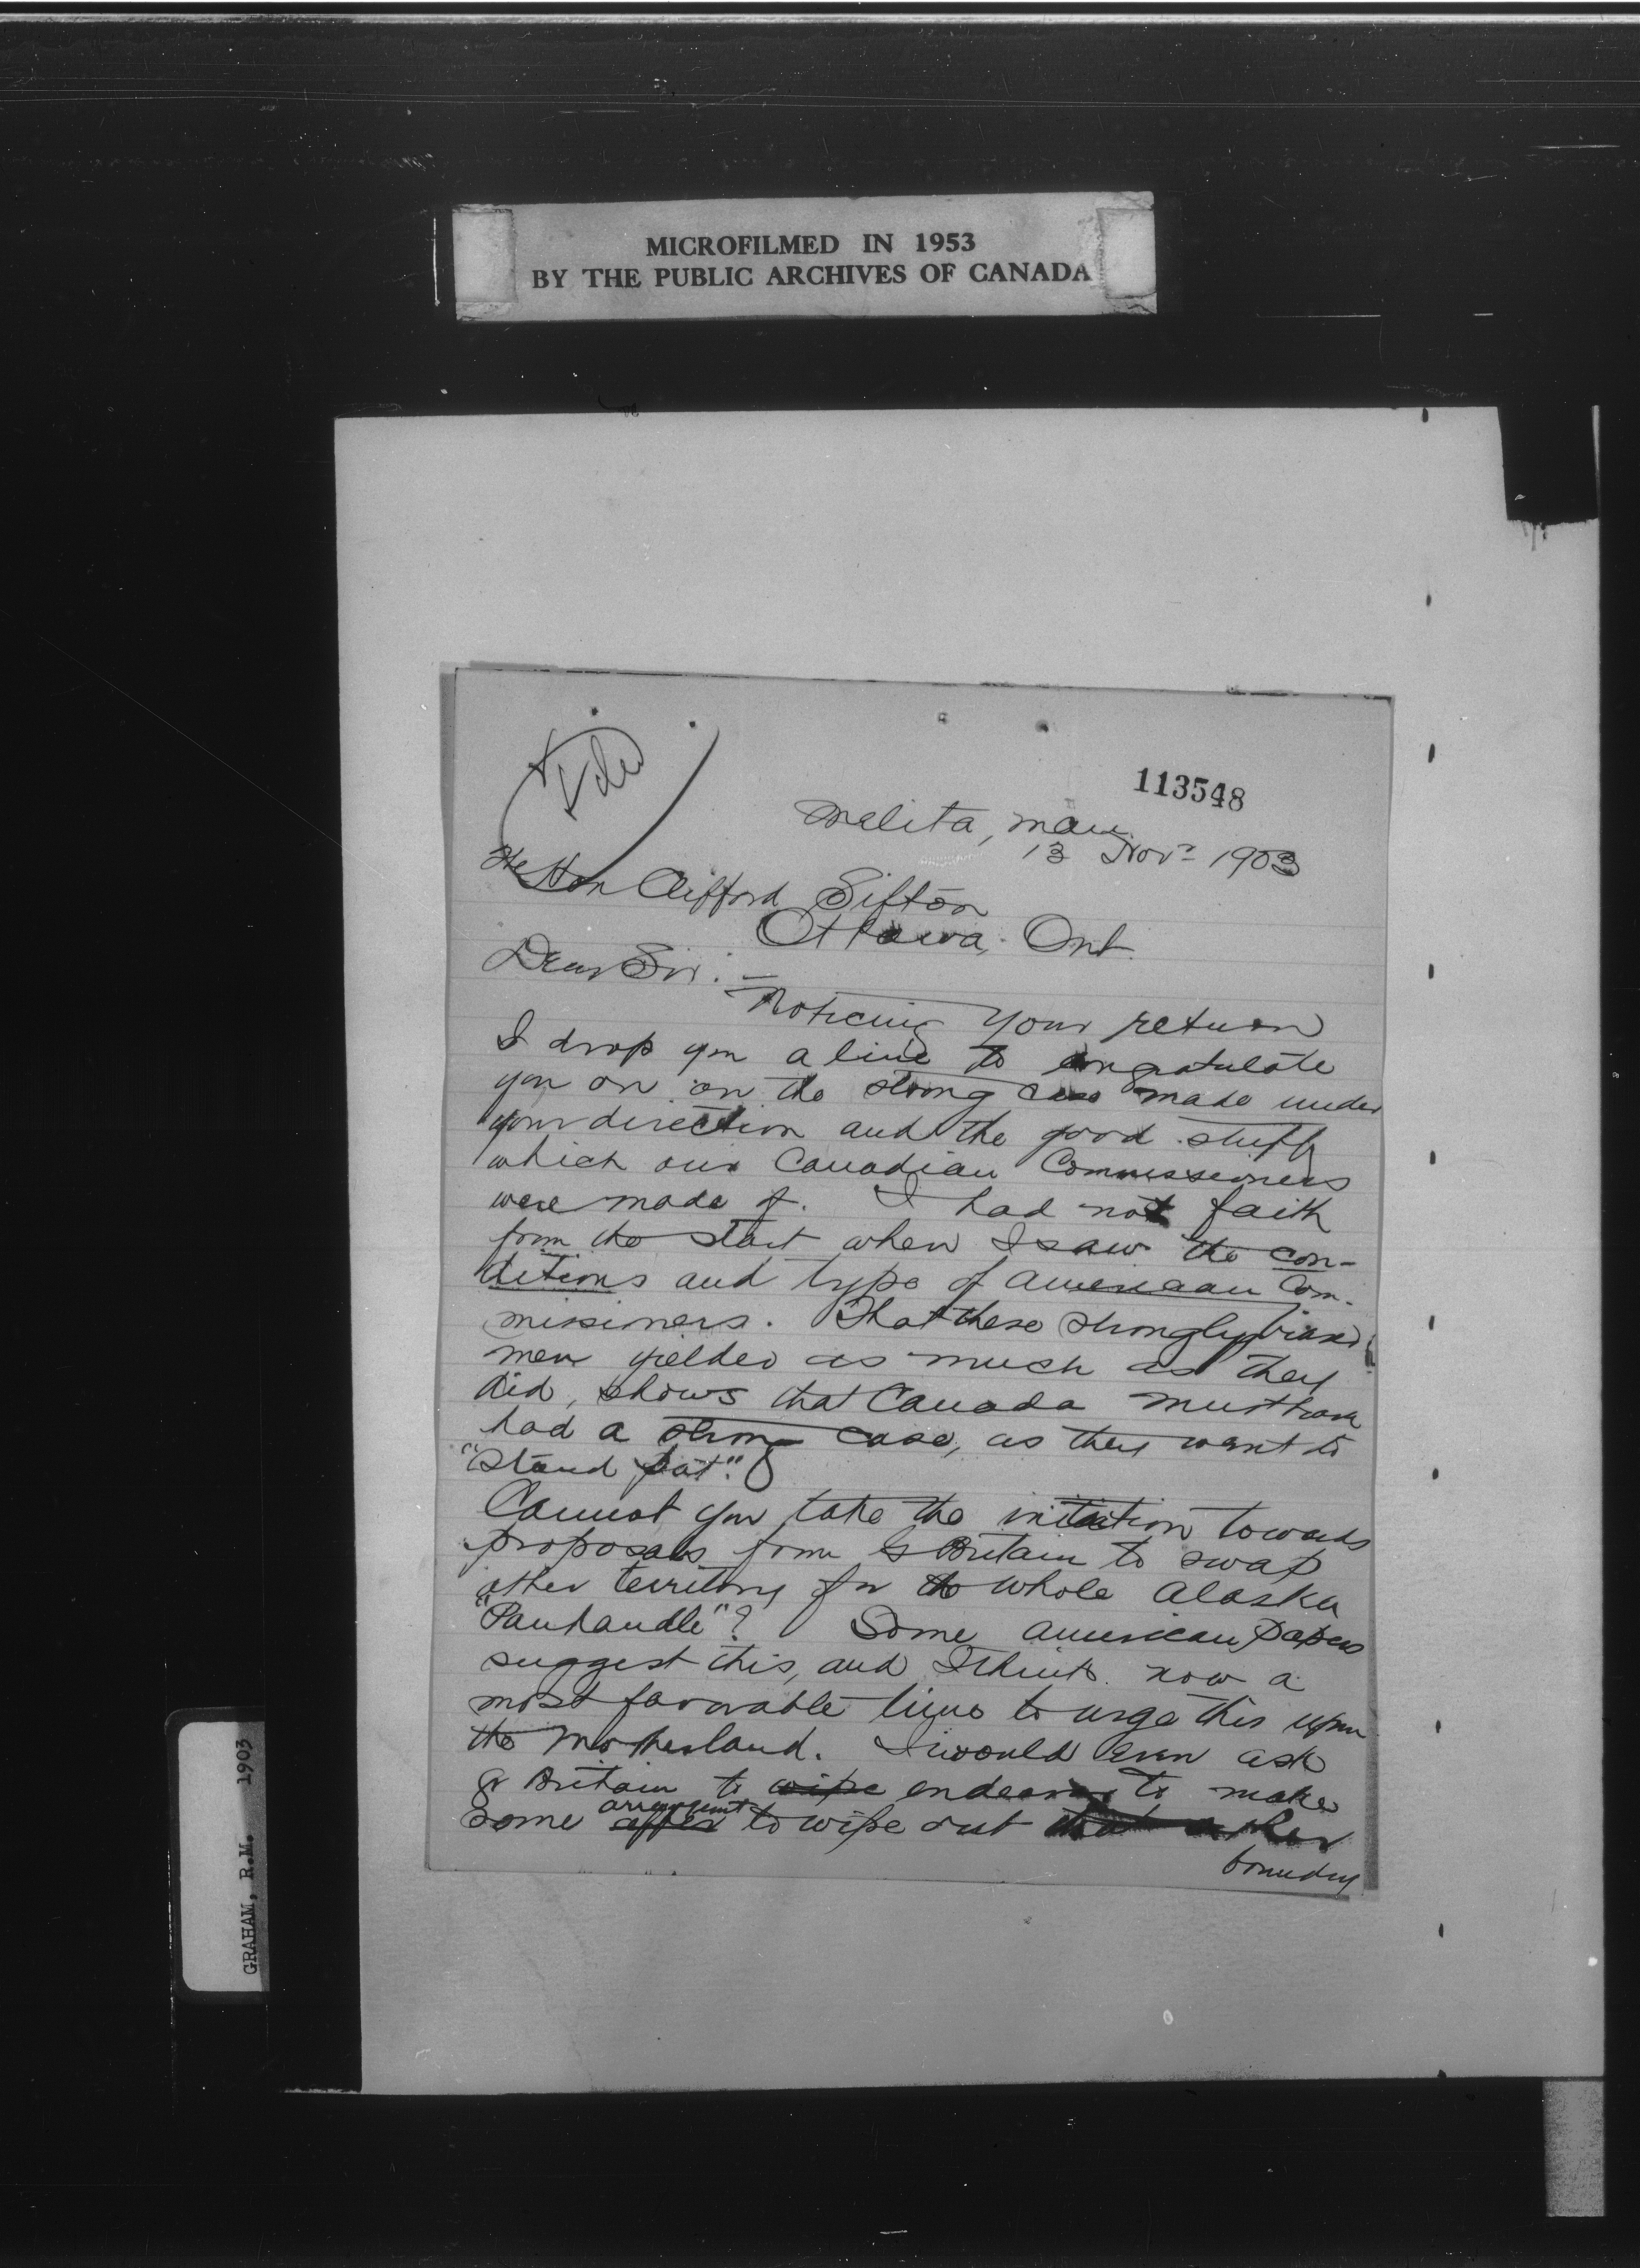 MICROFILMED IN 1953
BY THE PUBLIC ARCHIVES OF CANADA
113548
Melita, Man.
13 Nov. 1903
The Hon Clifford Sifton
Ottawa. Ont.
Dear Sir:—
Noticing your return
I drop you a line to congratulate
you on on the strong case made under
your direction and the good stuff
which our Canadian Commissioners
were made of. I had not faith
from the start when I saw the con-
ditions and type of American Com-
missioners. That these strongly biased
men yielded as much as they
did, shows that Canada must have
had a strong case, as they want to
"Stand pat".
Cannot you take the initiation towards
proposals from G Britain to swap
other territory for the whole Alaska
"Panhandle"? Some American papers
suggest this, and I think now a
most favorable time to urge this upon
the Motherland. I would even ask
Gr Britain to wipe endeavor to make
some offer arrangement to wipe out that other
boundary
GRAHAM, R.M. 1903